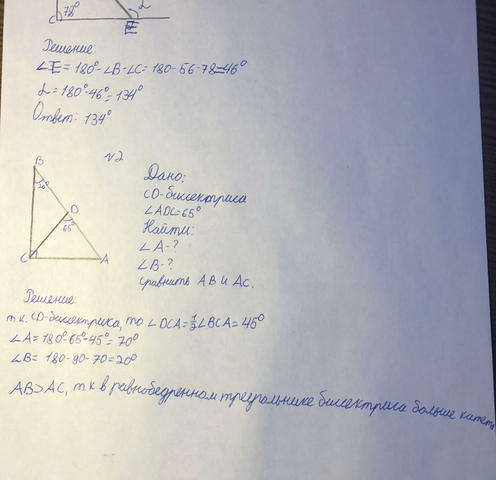 C 78° E α
Решение:
∠E = 180° - ∠B - ∠C = 180 - 56 - 78 = 46°
α = 180° - 46° = 134°
Ответ: 134°
№2
B
20°
D
65°
C A
Дано:
CD - биссектриса
∠ADC = 65°
Найти:
∠A - ?
∠B - ?
сравнить AB и AC.
Решение:
т.к. CD - биссектриса, то ∠DCA = ½∠BCA = 45°
∠A = 180° - 65° - 45° = 70°
∠B = 180 - 90 - 70 = 20°
AB > AC, т к в равнобедренном треугольнике биссектриса больше катета